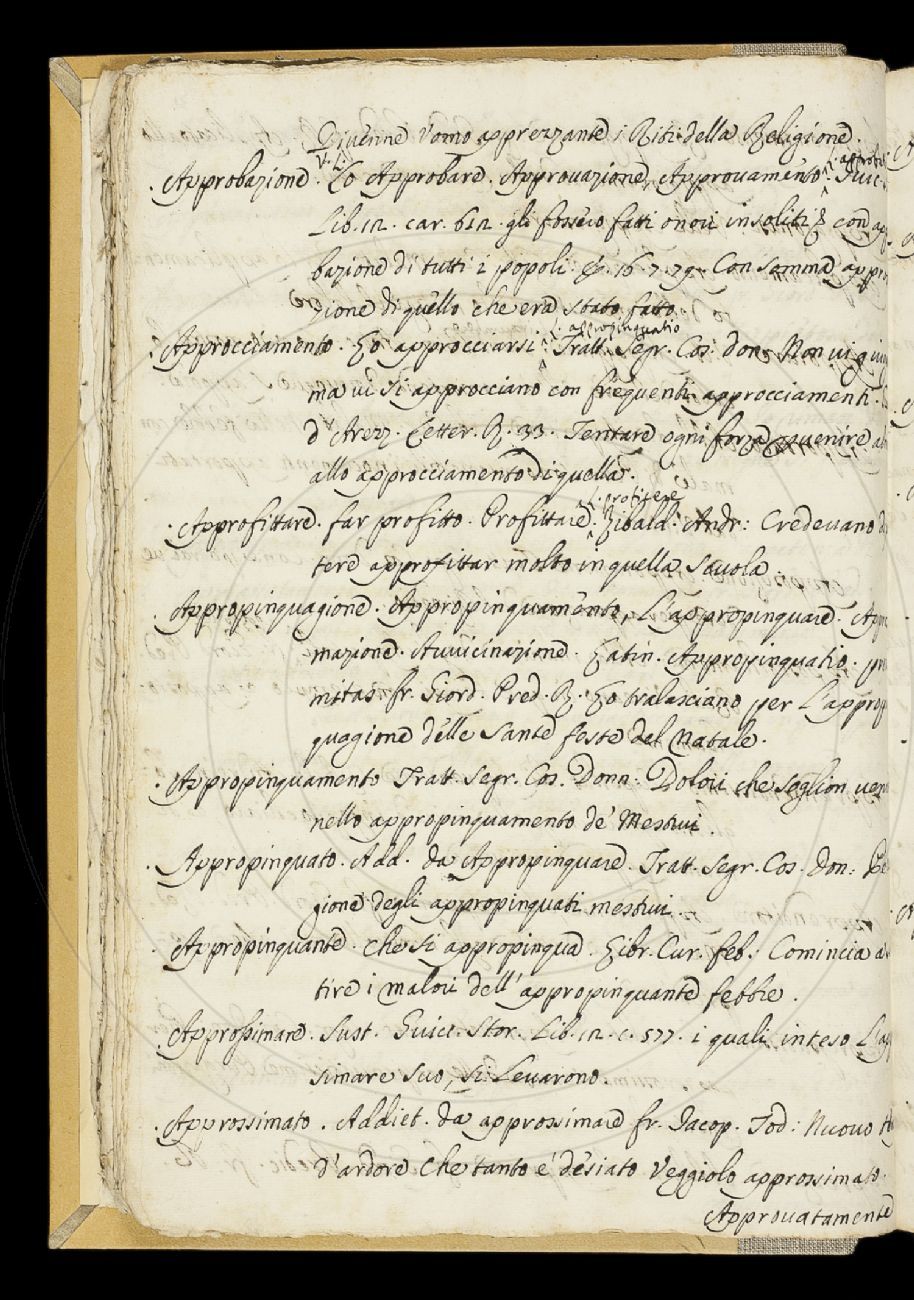 Divenne vomo apprezzante i Riti della Religione.
Approbazione. V. L. Lo Approbare. Approvazione, Approvamento. Guic.
Lib. 12. car. 612. gli fossero fatti onori insoliti & con ap
bazione di tutti i popoli. &. 16. 7. 79. Con somma appro
zione di quello che era stato fatto.
Approcciamento. Lo approcciarsi L. appropinquatio Tratt. Segr. Cos. don. Non vi
ma vi si approcciano con frequenti approcciamenti.
d'Arezz. Letter. R. 33. Tentare ogni forza
allo approcciamento di quella.
Approfittare. far profitto. Profittare. L. proficere Zibald. Andr: Credevano
tere approfittar molto in quella scuola.
Appropinquagione. Appropinquamento, L'appropinquare. App
mazione. Avvicinazione. Latin. Appropinquatio. pro
mitas. fr. Giord. Pred. R. Lo tralasciano per L'approp
quagione delle sante feste del Natale.
Appropinquamento Tratt. Segr. Cos. Donn. Dolori che soglion ven
nello appropinquamento de' Mestrui.
Appropinquato. Add. da Appropinquare. Tratt. Segr. Cos. don:
gione degli appropinquati mestrui.
Appropinquante. che si appropinqua. Libr. Cur. feb.: Comincia a
tire i malori dell'appropinquante febbre.
Approssimare. Sust. Guicc. Stor. Lib. 12. c. 577. i quali inteso L'ap
simare suo, si Levarono.
Approssimato. Addiet. da approssimare fr. Jacop. Tod: Nuovo
d'ardore che tanto e' desiato Veggiolo approssimato.
Approvatamente